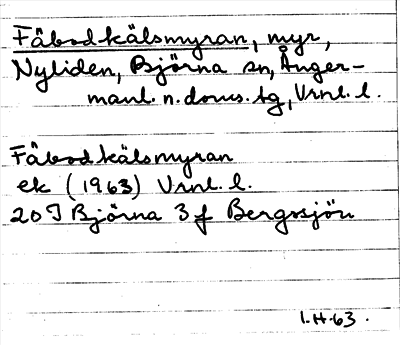 Fäbodkälsmyran, myr,
Nyliden, Björna sn, Ånger-
manl. n. doms. tg, Vrnl. l.
Fäbodkälsmyran
ek (1963) Vrnl. l.
20 J Björna 3 f Bergssjön
1.H.63.